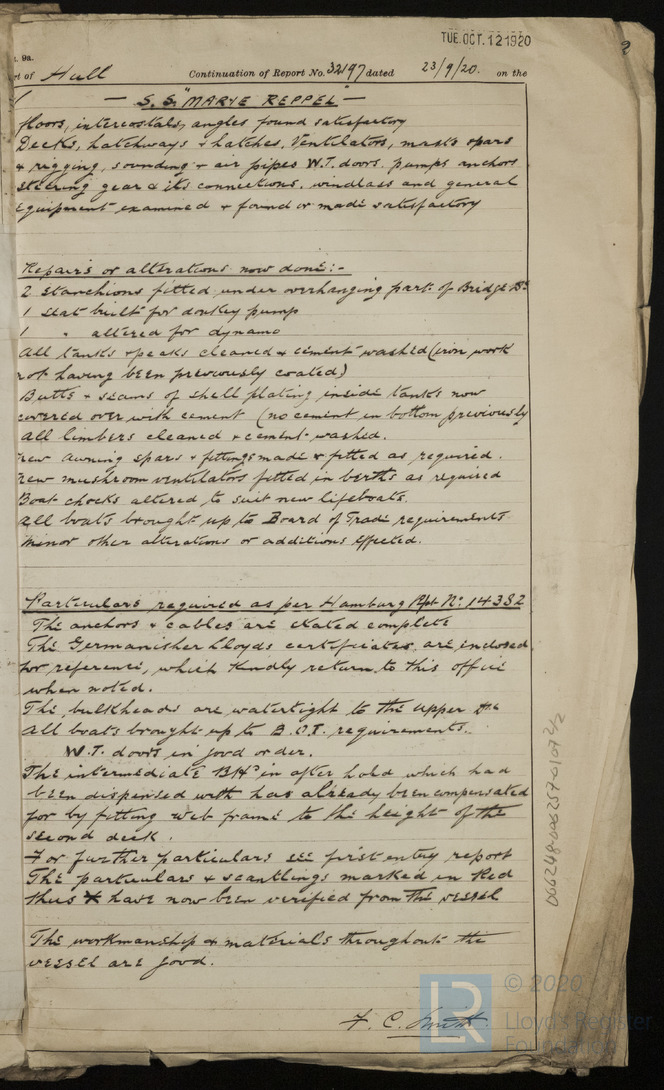 TUE. OCT. 12 1920
2
. 9a.
rt of Hull Continuation of Report No. 32197 dated 23/9/20. on the
— S.S. "MARYE REPPEL" —
floors, intercostals, angles found satisfactory
Decks, hatchways & hatches, Ventilators, masts spars
& rigging, sounding & air pipes W.T. doors. pumps anchors
steering gear & its connections. windlass and general
Equipment examined & found or made satisfactory
Repairs or alterations now done:-
2 stanchions fitted under overhanging part of Bridge
1 seat built for donkey pump
1 " altered for dynamo
All tanks & peaks cleaned & cement washed (iron work
not having been previously coated)
Butts & seams of shell plating inside tanks now
covered over with cement (no cement in bottom previously
All limbers cleaned & cement washed.
new awning spars & fittings made & fitted as required.
new mushroom ventilators fitted in berths as required
Boat chocks altered to suit new lifeboats.
All boats brought up to Board of Trade requirements
minor other alterations or additions effected.
Particulars required as per Hamburg Rpt No. 14382
The anchors & cables are stated complete
The Germanisher Lloyds certificates are enclosed
for reference, which kindly return to this office
when noted.
The bulkheads are watertight to the upper dk
All boats brought up to B.O.T. requirements.
W.T. doors in good order.
The intermediate BHd in after hold which had
been dispensed with has already been compensated
for by fitting web frame to the height of the
second deck.
For further particulars see first entry report
The particulars & scantlings marked in Red
thus X have now been verified from the vessel
The workmanship & materials throughout the
vessel are good.
F. C. Smith.
006248-006257-0109 2/2
LR
© 2020
Lloyd's Register
Foundation